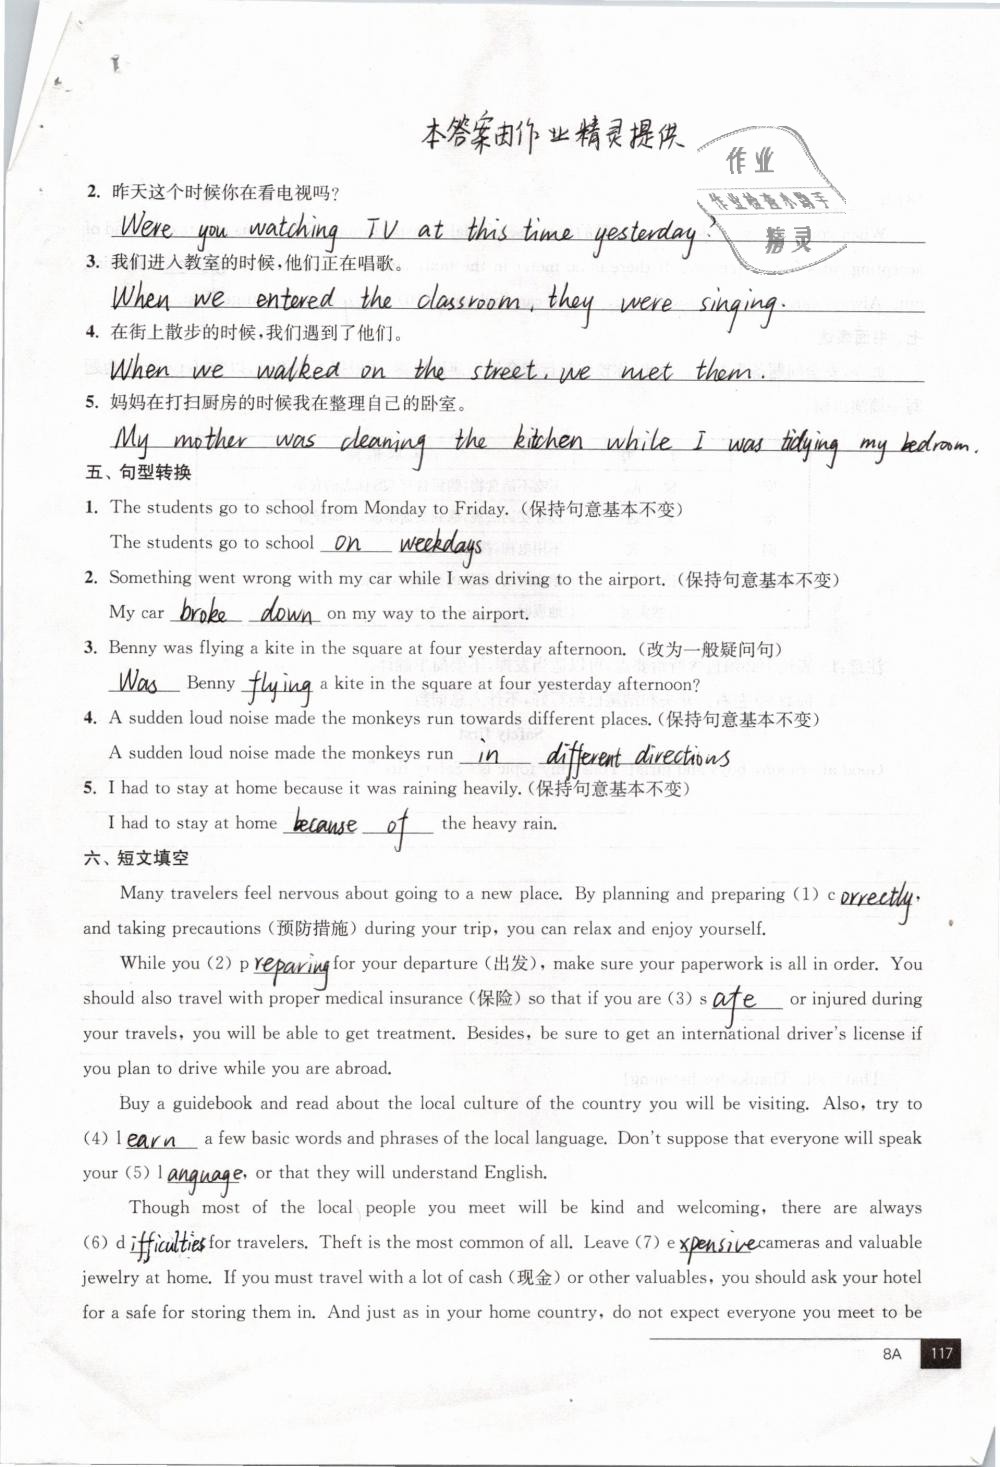 本答案由作业精灵提供
作业
作业检查小助手
精灵
2. 昨天这个时候你在看电视吗?
Were you watching TV at this time yesterday?
3. 我们进入教室的时候,他们正在唱歌。
When we entered the classroom, they were singing.
4. 在街上散步的时候,我们遇到了他们。
When we walked on the street, we met them.
5. 妈妈在打扫厨房的时候我在整理自己的卧室。
My mother was cleaning the kitchen while I was tidying my bedroom.
五、句型转换
1. The students go to school from Monday to Friday. (保持句意基本不变)
The students go to school on weekdays
2. Something went wrong with my car while I was driving to the airport. (保持句意基本不变)
My car broke down on my way to the airport.
3. Benny was flying a kite in the square at four yesterday afternoon. (改为一般疑问句)
Was Benny flying a kite in the square at four yesterday afternoon?
4. A sudden loud noise made the monkeys run towards different places. (保持句意基本不变)
A sudden loud noise made the monkeys run in different directions
5. I had to stay at home because it was raining heavily. (保持句意基本不变)
I had to stay at home because of the heavy rain.
六、短文填空
Many travelers feel nervous about going to a new place. By planning and preparing (1) c orrectly,
and taking precautions (预防措施) during your trip, you can relax and enjoy yourself.
While you (2) p reparing for your departure (出发), make sure your paperwork is all in order. You
should also travel with proper medical insurance (保险) so that if you are (3) s afe or injured during
your travels, you will be able to get treatment. Besides, be sure to get an international driver's license if
you plan to drive while you are abroad.
Buy a guidebook and read about the local culture of the country you will be visiting. Also, try to
(4) l earn a few basic words and phrases of the local language. Don't suppose that everyone will speak
your (5) l anguage, or that they will understand English.
Though most of the local people you meet will be kind and welcoming, there are always
(6) d ifficulties for travelers. Theft is the most common of all. Leave (7) e xpensive cameras and valuable
jewelry at home. If you must travel with a lot of cash (现金) or other valuables, you should ask your hotel
for a safe for storing them in. And just as in your home country, do not expect everyone you meet to be
8A 117